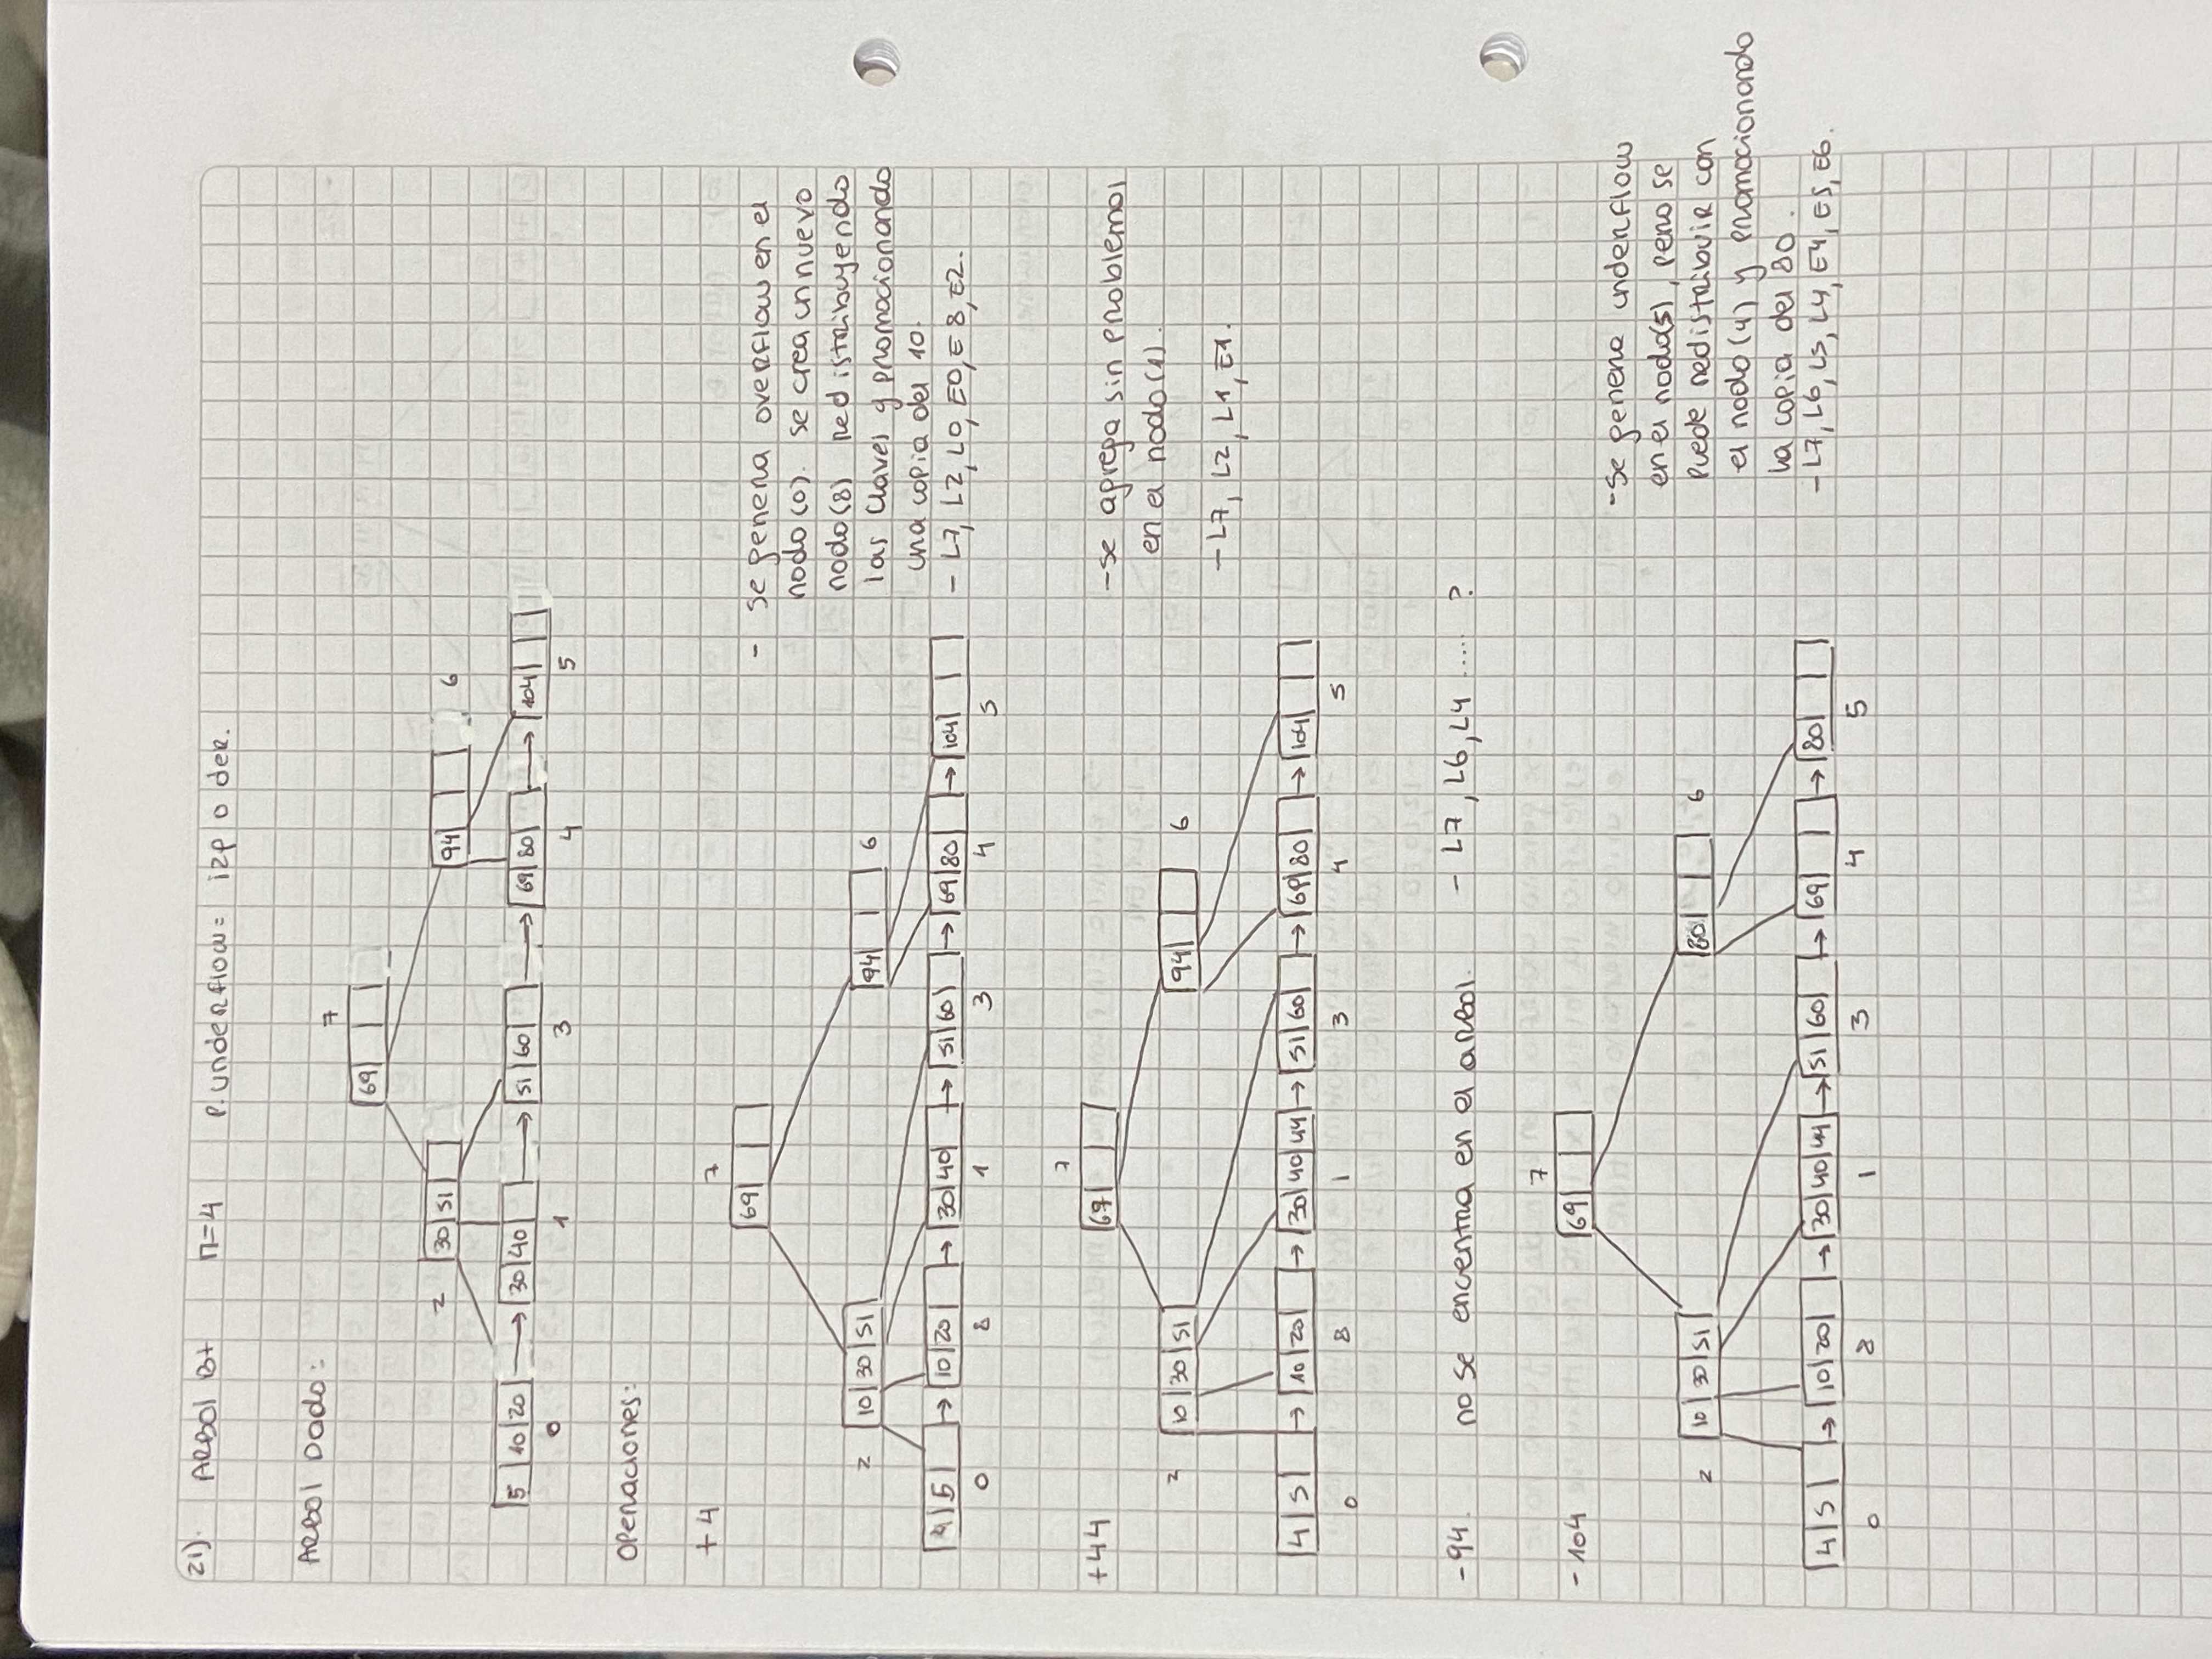 21). ARBOl B+ M=4 P. underflow= izq o der.
ARBOl Dado:
7
69
2 30 51 94 6
5 10 20 → 30 40 → 51 60 → 69 80 → 104
0 1 3 4 5
Operaciones:
+4
7
69
2 10 30 51 94 6
4 5 → 10 20 → 30 40 → 51 60 → 69 80 → 104
0 8 1 3 4 5
- se genera overflow en el
nodo(0). se crea un nuevo
nodo(8) redistribuyendo
las claves y promocionando
una copia del 10.
- L7, L2, L0, E0, E8, E2.
+44
7
69
2 10 30 51 94 6
4 5 → 10 20 → 30 40 44 → 51 60 → 69 80 → 104
0 8 1 3 4 5
- se agrega sin problemas
en el nodo(1).
- L7, L2, L1, E1.
-94. no se encentra en el arbol. - L7, L6, L4 ..... ?
-104
7
69
2 10 30 51 80 6
4 5 → 10 20 → 30 40 44 → 51 60 → 69 → 80
0 8 1 3 4 5
- Se genera underflow
en el nodo(5), pero se
puede redistribuir con
el nodo(4) y promocionando
la copia del 80.
- L7, L6, L5, L4, E4, E5, E6.